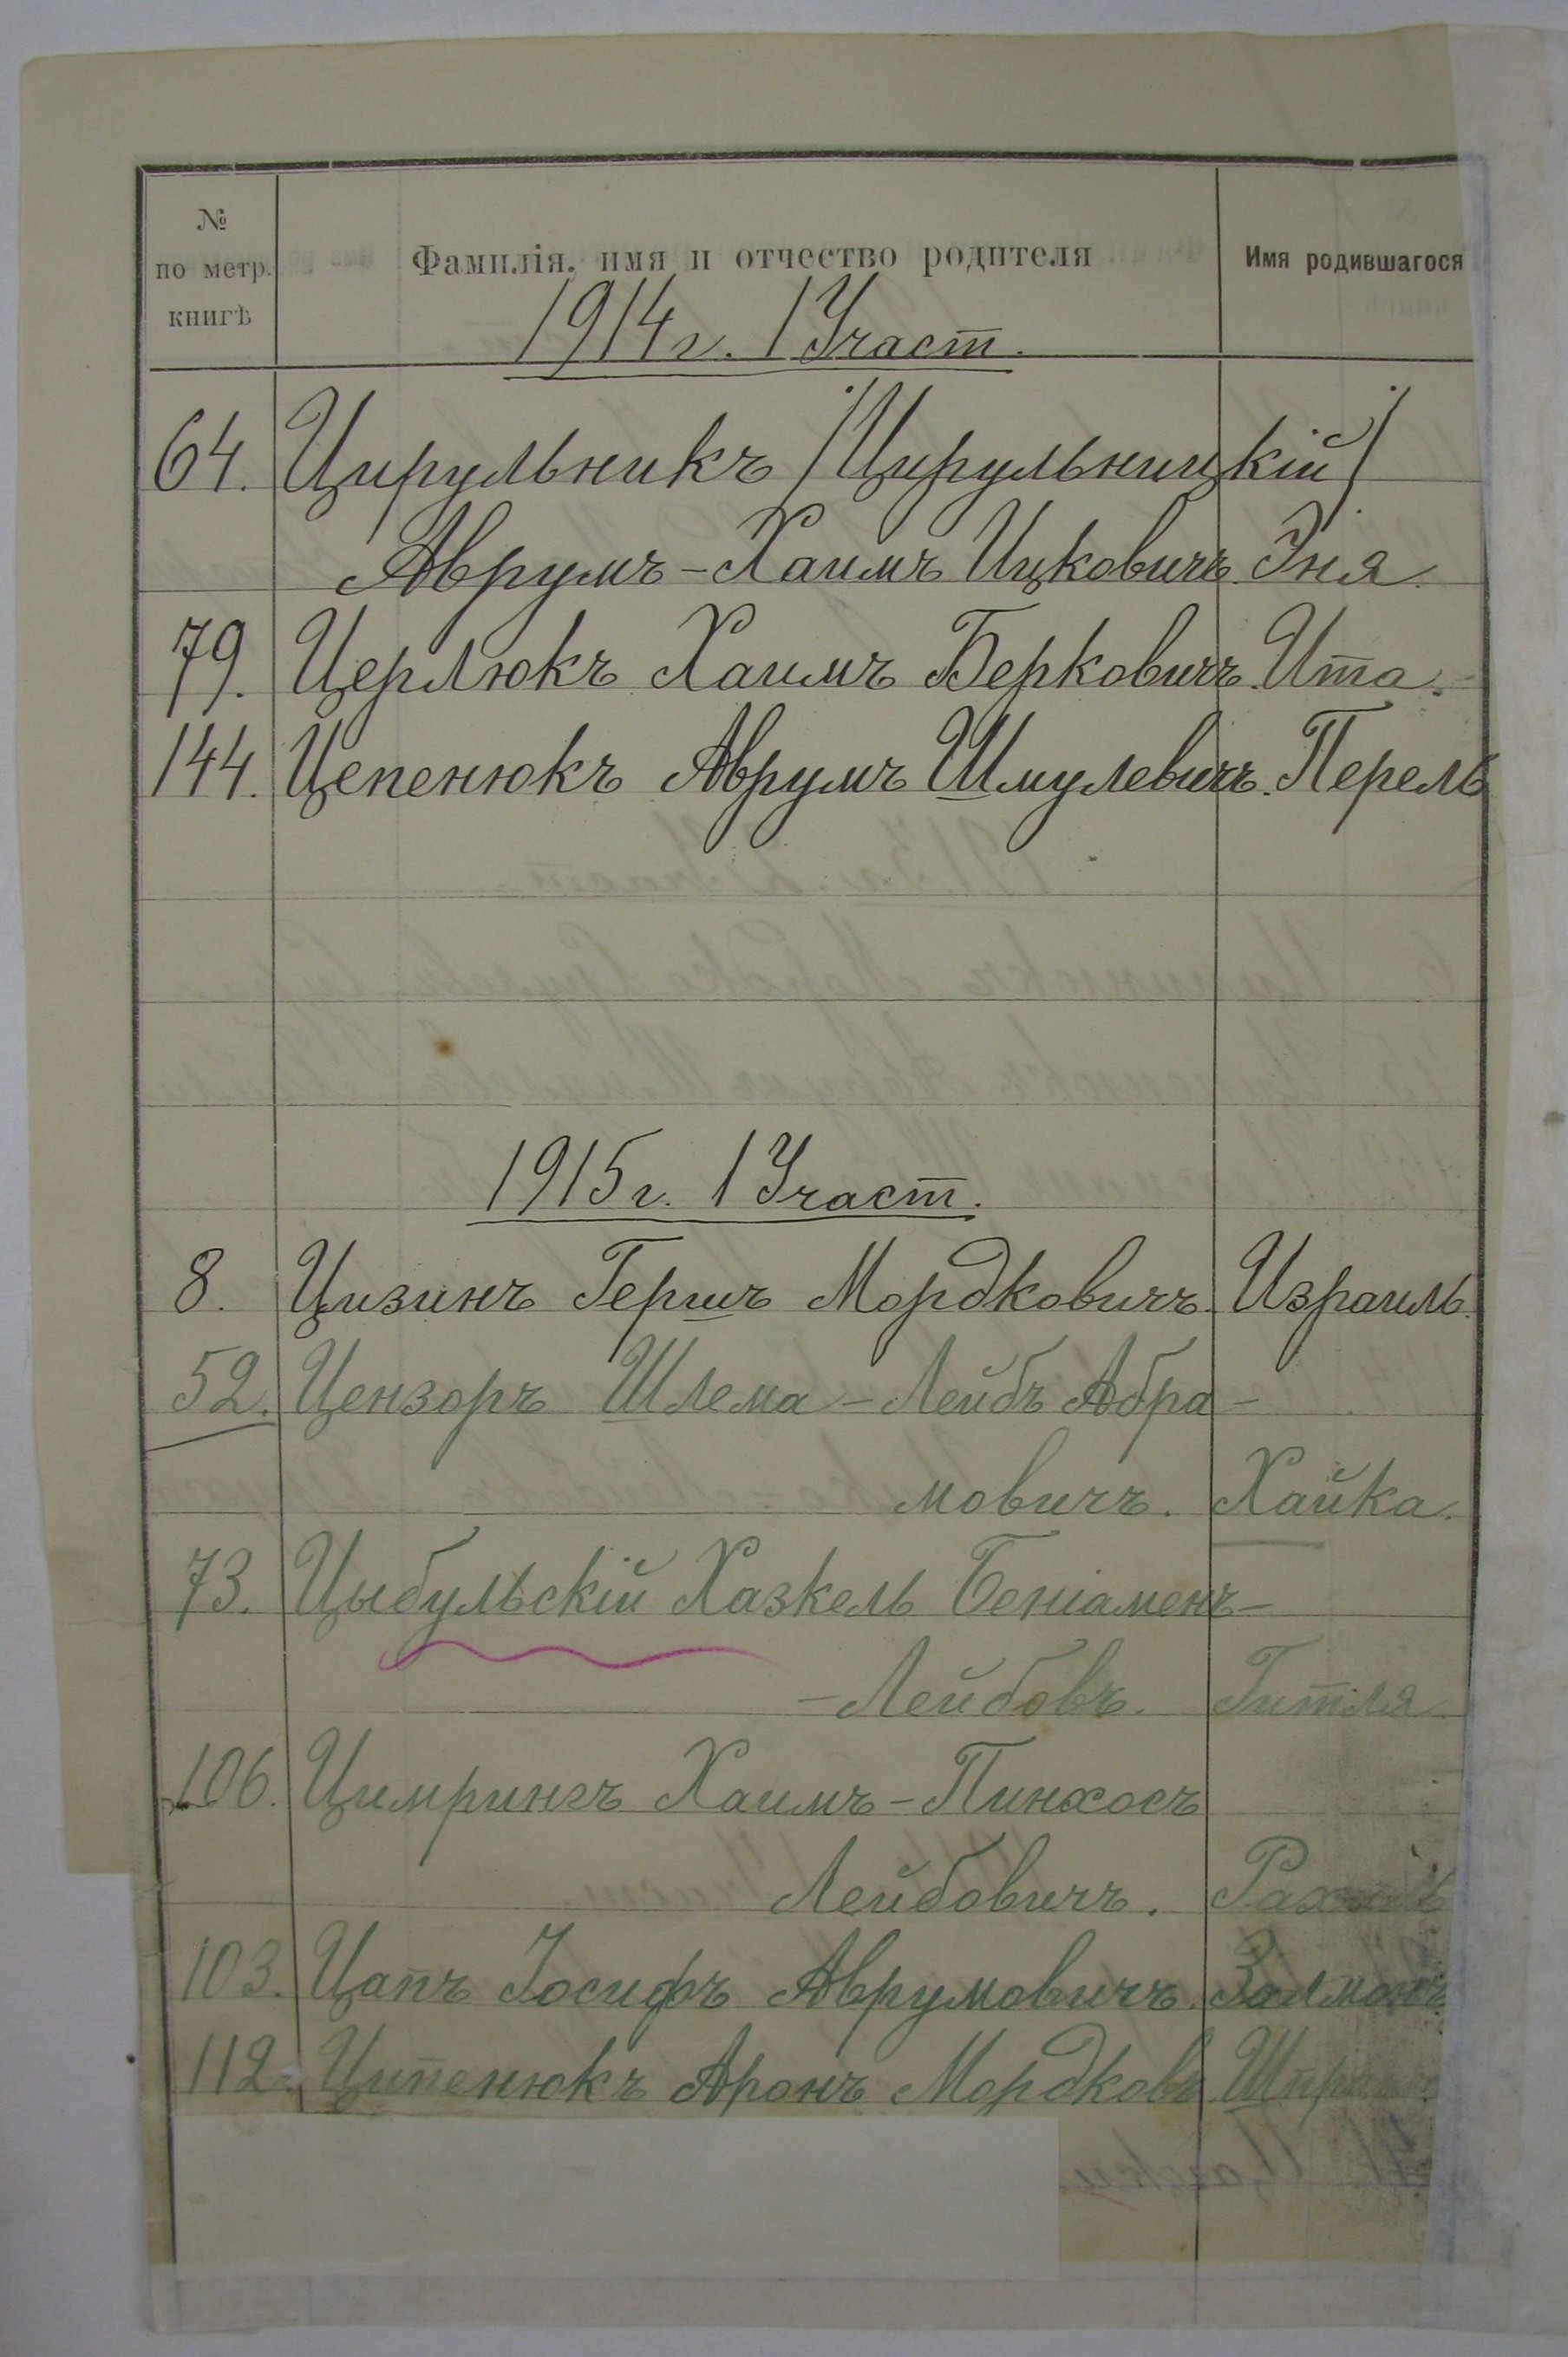 № по метр. книгѣ Фамилія, имя и отчество родителя Имя родившагося
1914 г. 1 Участ.
64. Цирульникъ /Цирульницкій/
Аврумъ-Хаимъ Ицковичъ. Эня.
79. Церлюкъ Хаимъ Берковичъ. Ита.
144. Цепенюкъ Аврумъ Шмулевичъ. Перель
1915 г. 1 Участ.
8. Цизинъ Гершъ Мордковичъ. Израиль.
52. Цензоръ Шлема-Лейбъ Абра-
мовичъ. Хайка.
73. Цыбульскій Хазкель Беніаменъ-
-Лейбовъ. Гитля
106. Цимрингъ Хаимъ-Пинхосъ
Лейбовичъ. Рахиль
103. Цапъ Іосифъ Аврумовичъ. Залманъ
112. Ципенюкъ Аронъ Мордковъ